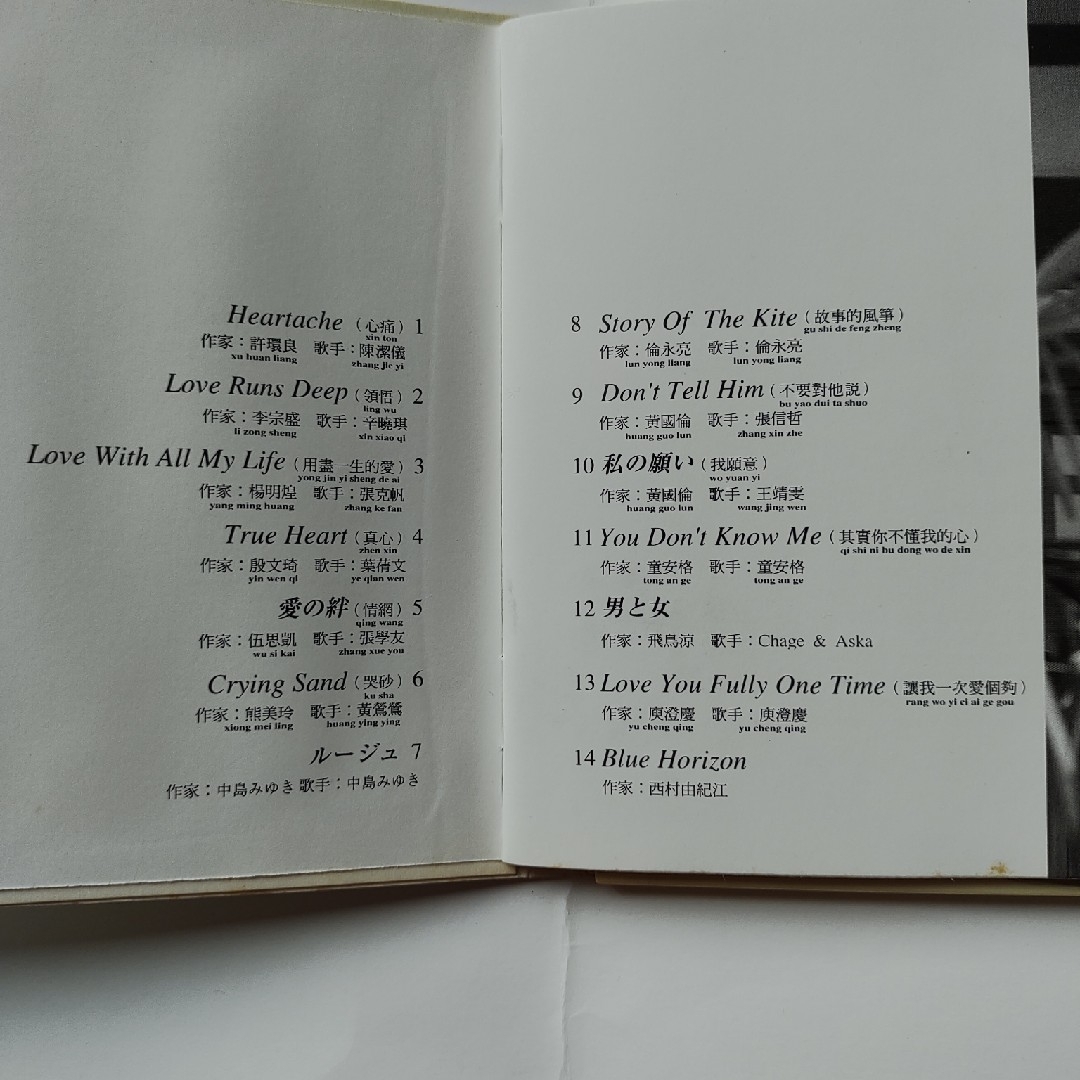 Heartache（心痛）1
xin ton
作家：許環良　歌手：陳潔儀
xu huan liang　zhang jie yi
Love Runs Deep（領悟）2
ling wu
作家：李宗盛　歌手：辛曉琪
li zong sheng　xin xiao qi
Love With All My Life（用盡一生的愛）3
yong jin yi sheng de ai
作家：楊明煌　歌手：張克帆
yang ming huang　zhang ke fan
True Heart（真心）4
zhen xin
作家：殷文琦　歌手：葉倩文
yin wen qi　ye qian wen
愛の絆（情網）5
qing wang
作家：伍思凱　歌手：張學友
wu si kai　zhang xue you
Crying Sand（哭砂）6
ku sha
作家：熊美玲　歌手：黃鶯鶯
xiong mei ling　huang ying ying
ルージュ 7
作家：中島みゆき 歌手：中島みゆき
8 Story Of The Kite（故事的風箏）
gu shi de feng zheng
作家：倫永亮　歌手：倫永亮
lun yong liang　lun yong liang
9 Don't Tell Him（不要對他説）
bu yao dui ta shuo
作家：黃國倫　歌手：張信哲
huang guo lun　zhang xin zhe
10 私の願い（我願意）
wo yuan yi
作家：黃國倫　歌手：王靖雯
huang guo lun　wang jing wen
11 You Don't Know Me（其實你不懂我的心）
qi shi ni bu dong wo de xin
作家：童安格　歌手：童安格
tong an ge　tong an ge
12 男と女
作家：飛鳥涼　歌手：Chage & Aska
13 Love You Fully One Time（讓我一次愛個夠）
rang wo yi ci ai ge gou
作家：庾澄慶　歌手：庾澄慶
yu cheng qing　yu cheng qing
14 Blue Horizon
作家：西村由紀江